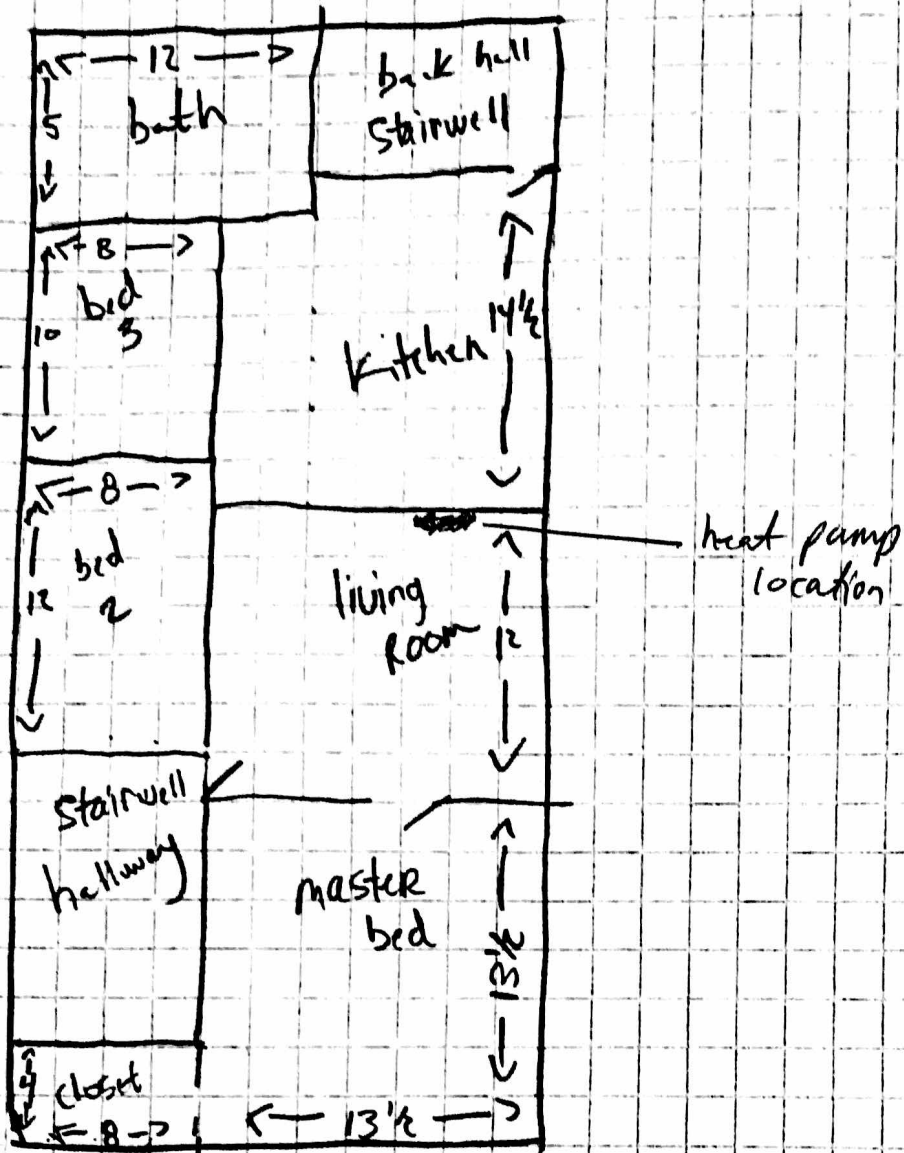 12
5
bath
back hall
stairwell
8
10
bed
3
kitchen
14½
8
12
bed
2
living
room
12
heat pump
location
stairwell
hallway
master
bed
13½
4
closet
8
13½